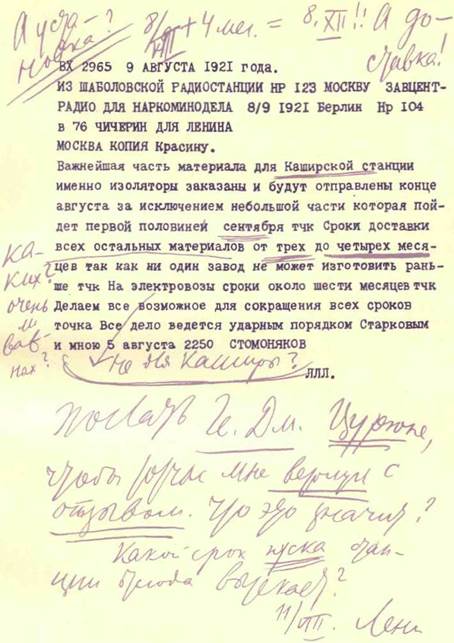 А уста-
новка?
8/VIII + 4 мес. = 8. XII!! А до-
ставка!
ВХ 2965 9 АВГУСТА 1921 года.
ИЗ ШАБОЛОВСКОЙ РАДИОСТАНЦИИ НР 123 МОСКВУ ЗАВЦЕНТ-
РАДИО ДЛЯ НАРКОМИНОДЕЛА 8/9 1921 Берлин Нр 104
в 76 ЧИЧЕРИН ДЛЯ ЛЕНИНА
МОСКВА КОПИЯ Красину.
Важнейшая часть материала для Каширской станции
именно изоляторы заказаны и будут отправлены конце
августа за исключением небольшой части которая пой-
дет первой половиней сентября тчк Сроки доставки
всех остальных материалов от трех до четырех меся-
цев так как ни один завод не может изготовить рань-
ше тчк На электровозы сроки около шести месяцев тчк
Делаем все возможное для сокращения всех сроков
точка Все дело ведется ударным порядком Старковым
и мною 5 августа 2250 СТОМОНЯКОВ
ЛЛЛ.
ка-
ких?
очень
ли
важ-
ных?
Не для Каширы?
Послать Г. Дм. Цурюпе,
чтобы тотчас мне вернул с
отзывом. Что это значит?
Какой срок пуска стан-
ции отсюда вытекает?
11/VIII. Ленин